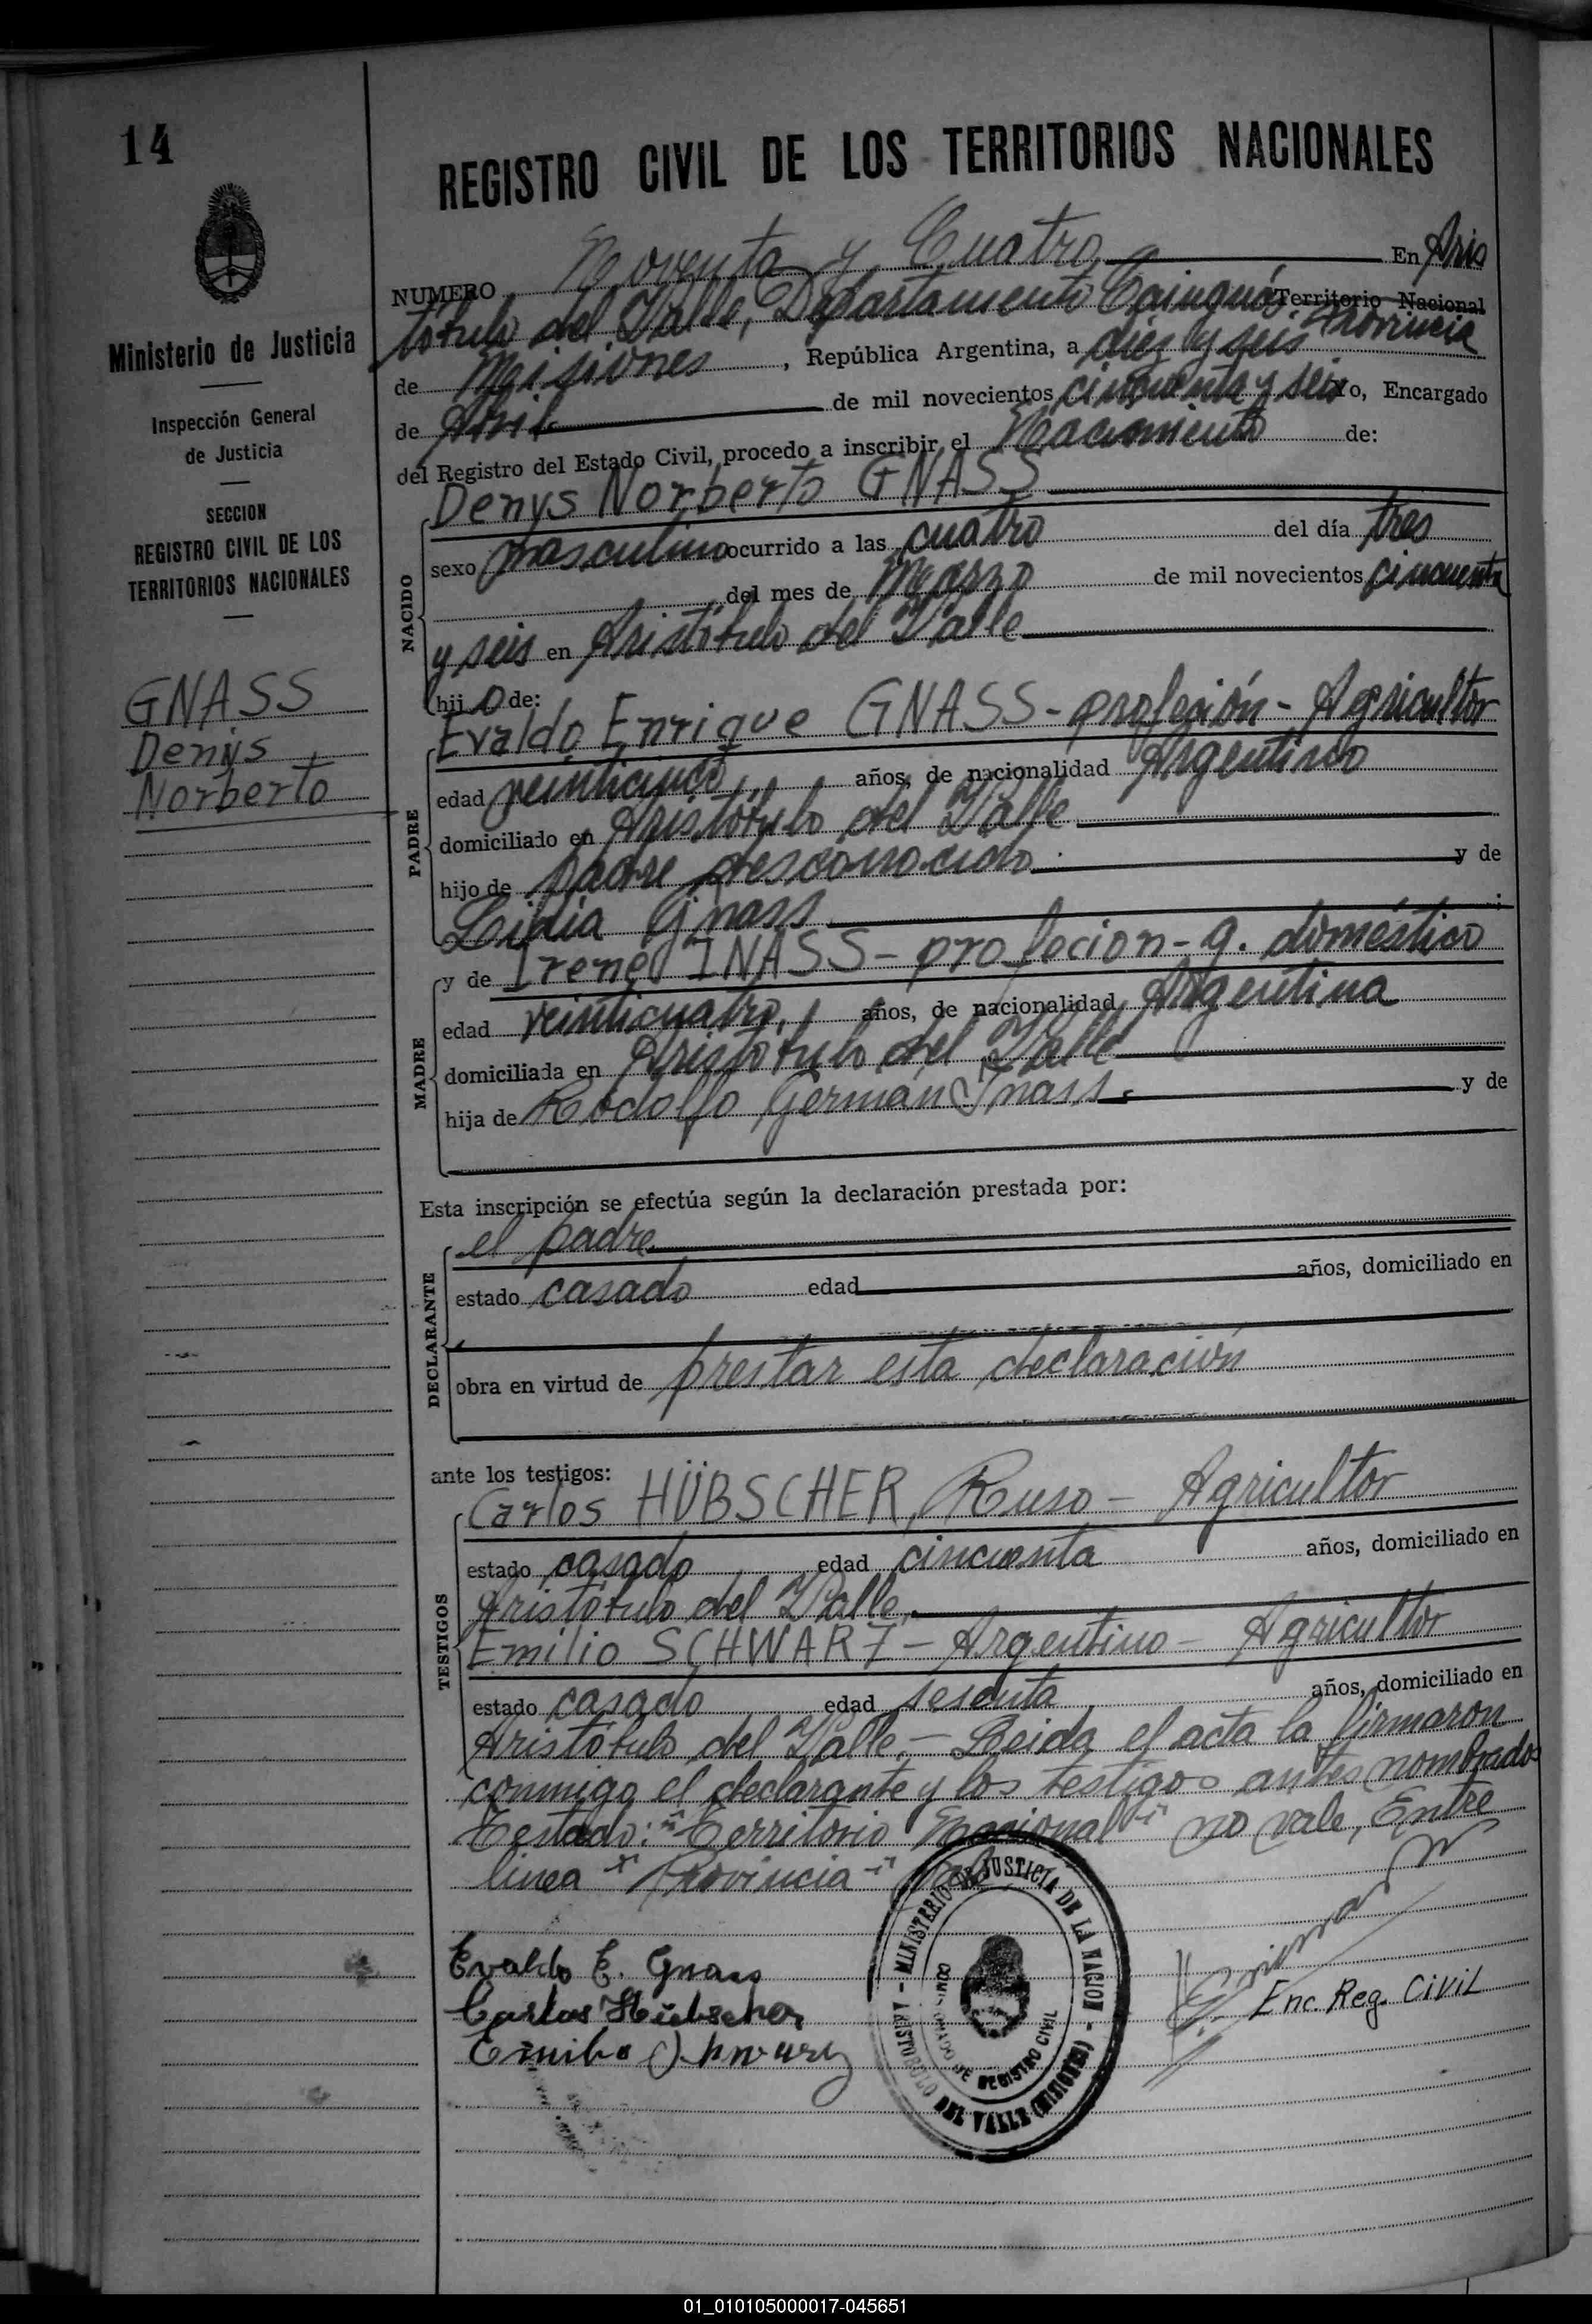 14
REGISTRO CIVIL DE LOS TERRITORIOS NACIONALES
Ministerio de Justicia
Inspección General
de Justicia
SECCION
REGISTRO CIVIL DE LOS
TERRITORIOS NACIONALES
GNASS
Denys
Norberto
NUMERO Noventa y Cuatro En Aris
tóbulo del Valle, Departamento Cainguás Territorio Nacional Provincia
de Misiones, República Argentina, a diez y seis
de Abril de mil novecientos cincuenta y seis Yo, Encargado
del Registro del Estado Civil, procedo a inscribir el Nacimiento de:
Denys Norberto GNASS
NACIDO
sexo masculino ocurrido a las cuatro del día tres
del mes de Marzo de mil novecientos cincuenta
y seis en Aristóbulo del Valle
hijo de:
PADRE
Evaldo Enrique GNASS - profeción - Agricultor
edad veinticinco años, de nacionalidad Argentino
domiciliado en Aristóbulo del Valle
hijo de padre desconocido y de
Lidia Gnass ;
MADRE
y de Irene INASS - profecion - q. doméstico
edad veinticuatro, años, de nacionalidad Argentina
domiciliada en Aristóbulo del Valle
hija de Rodolfo Germán Inass. y de
Esta inscripción se efectúa según la declaración prestada por:
DECLARANTE
el padre
estado casado edad años, domiciliado en
obra en virtud de prestar esta declaración
ante los testigos:
TESTIGOS
Carlos HÜBSCHER, Ruso - Agricultor
estado casado edad cincuenta años, domiciliado en
Aristóbulo del Valle,
Emilio SCHWARZ - Argentino - Agricultor
estado casado edad sesenta años, domiciliado en
Aristóbulo del Valle, - Leida el acta la firmaron
conmigo el declarante y los testigos antes nombrados
Testado: "Territorio Nacional" no vale, Entre
linea "Provincia"
Evaldo E. Gnass
Carlos Hübscher
Emilio Schwarz
MINISTERIO DE JUSTICIA DE LA NACION - ARISTOBULO DEL VALLE (MISIONES)
DE REGISTRO CIVIL
Enc. Reg. Civil
01_010105000017-045651